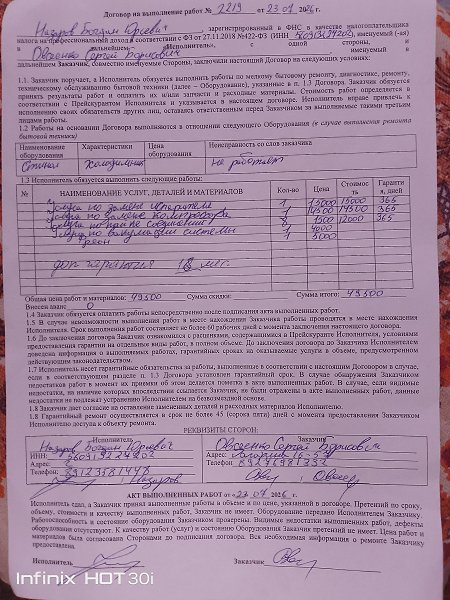 Договор на выполнение работ № 2219 от 23.01.2026г.
Назаров Богдан Юрьевич, зарегистрированный в ФНС в качестве налогоплательщика
налога на профессиональный доход в соответствии с ФЗ от 27.11.2018 №422-ФЗ (ИНН), именуемый (-ая)
в дальнейшем «Исполнитель», с одной стороны, и
Овсеенко Сергей Борисович, именуемый в
дальнейшем «Заказчик», совместно именуемые Стороны, заключили настоящий Договор на следующих условиях:
1.1. Заказчик поручает, а Исполнитель обязуется выполнить работы по мелкому бытовому ремонту, диагностике, ремонту,
техническому обслуживанию бытовой техники (далее – Оборудование), указанные в п. 1.3 Договора. Заказчик обязуется
принять результаты работ и оплатить их и/или запчасти и расходные материалы. Стоимость работ определяется в
соответствии с Прейскурантом Исполнителя и указывается в настоящем договоре. Исполнитель вправе привлекать к
исполнению своих обязательств других лиц, оставаясь ответственным перед Заказчиком за выполняемые такими третьими
лицами работы.
1.2 Работы на основании Договора выполняются в отношении следующего Оборудования (в случае выполнения ремонта
бытовой техники)
Наименование оборудования Характеристики Цена оборудования Неисправность со слов заказчика
Холодильник не работает
1.3 Исполнитель обязуется выполнить следующие работы:
№ НАИМЕНОВАНИЕ УСЛУГ, ДЕТАЛЕЙ И МАТЕРИАЛОВ Кол-во Цена Стоимость Гарантия, дней
Услуга по замене испарителя 1 15000 15000 365
Услуга по замене компрессора 1 14500 14500 365
Услуга по пайке соединений 1500 12000 365
Услуга по вакумации системы 4000
фреон 5000
доп гарантия 18 мес.
Общая цена работ и материалов: 49500 Сумма скидки: Сумма итого: 49500
Внесен аванс 0
1.4 Заказчик обязуется оплатить работы непосредственно после подписания акта выполненных работ.
1.5 В случае невозможности выполнения работ в месте нахождения Заказчика работы проводятся в месте нахождения
Исполнителя. Срок выполнения работ составляет не более 60 рабочих дней с момента заключения настоящего договора.
1.6 До заключения договора Заказчик ознакомился с расценками, содержащимися в Прейскуранте Исполнителя, условиями
предоставления гарантии на отдельные виды работ, в полном объеме. До заключения договора до Заказчика Исполнителем
доведена информация о выполняемых работах, гарантиях на оказываемые услуги в объеме, предусмотренном
действующим законодательством.
1.7 Исполнитель несет гарантийные обязательства за работы, выполненные в соответствии с настоящим Договором в случае,
если в соответствующем разделе п. 1.3 Договора установлен гарантийный срок. В случае обнаружения Заказчиком
недостатков работ в момент их приемки об этом делается пометка в акте выполненных работ. В случае, если видимые
недостатки, на наличие которых впоследствии ссылается Заказчик, не были отражены в акте выполненных работ, данные
недостатки не подлежат устранению Исполнителем на безвозмездной основе.
1.8 Заказчик дает согласие на оставление замененных деталей и расходных материалов Исполнителю.
1.8 Гарантийный ремонт осуществляется в срок не более 45 (сорока пяти) дней с момента предоставления Заказчиком
Исполнителю доступа к объекту ремонта.
РЕКВИЗИТЫ СТОРОН:
Исполнитель Заказчик
Назаров Богдан Юрьевич Овсеенко Сергей Борисович
ИНН: Адрес:
Адрес: Телефон:
89123581448
Назаров
АКТ ВЫПОЛНЕННЫХ РАБОТ от «23.01 2026 г.
Исполнитель сдал, а Заказчик принял выполненные работы в объеме и по цене, указанной в договоре. Претензий по сроку,
объему, стоимости и качеству выполненных работ, Заказчик не имеет. Оборудование передано Исполнителем Заказчику.
Работоспособность и состояние оборудования Заказчиком проверены. Видимые недостатки выполненных работ, дефекты
оборудования отсутствуют. К качеству работ (услуг) и состоянию Оборудования Заказчик претензий не имеет. Цена работ и
материалов была согласована Сторонами до подписания договора. Вся необходимая информация о ремонте Заказчику
предоставлена.
Исполнитель Заказчик
Infinix HOT 30i